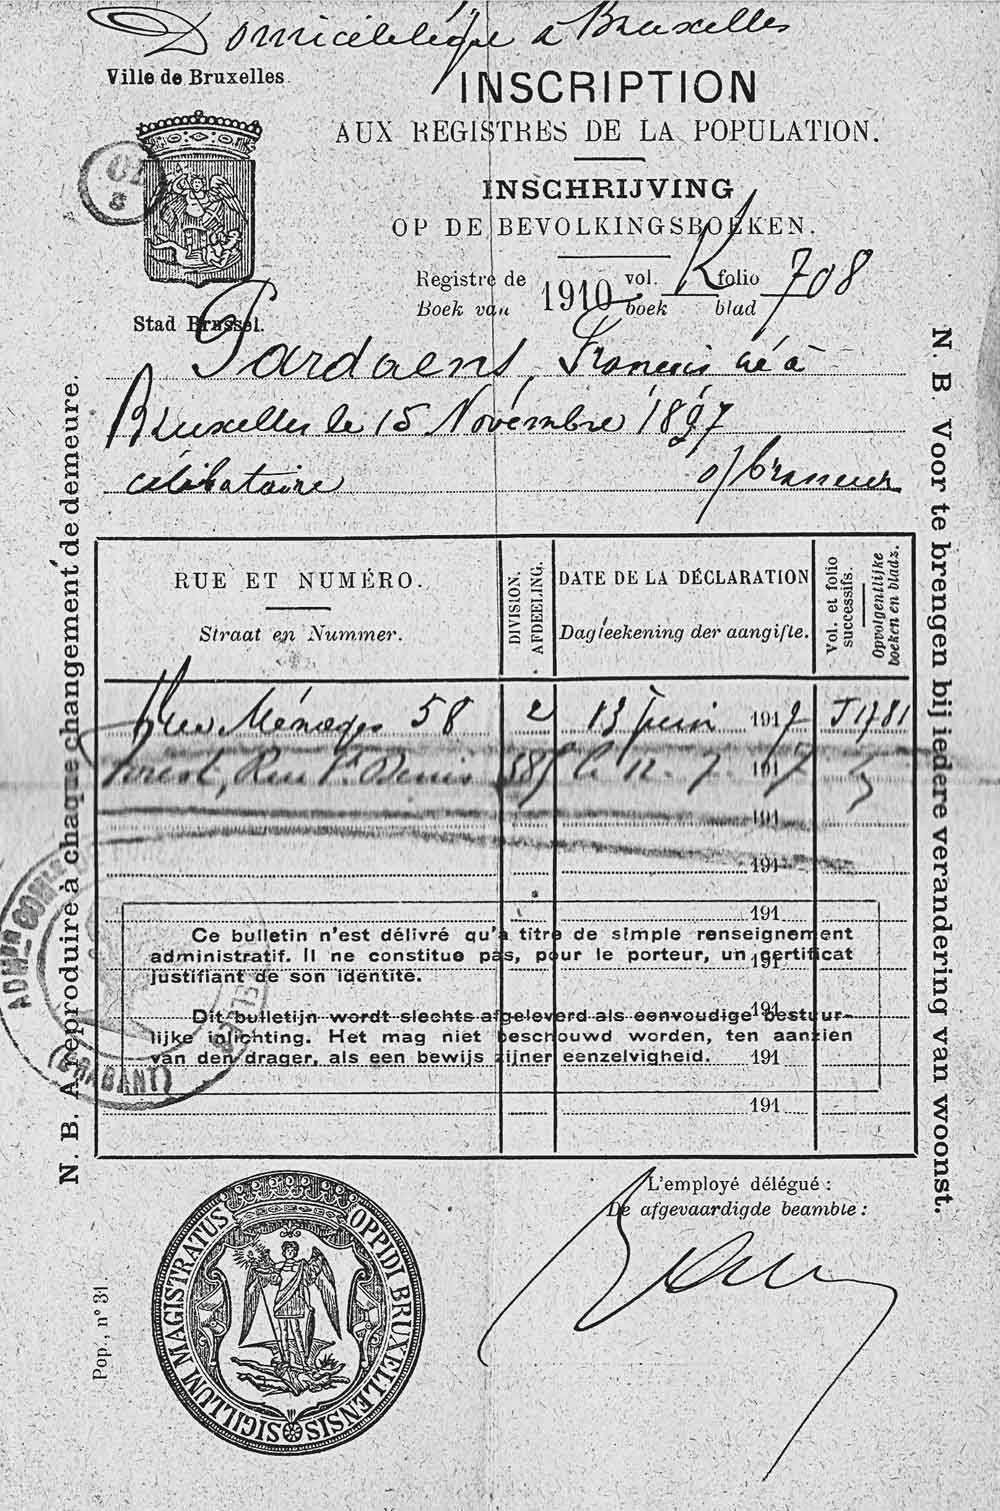 Domicilié à Bruxelles
Ville de Bruxelles.
INSCRIPTION
AUX REGISTRES DE LA POPULATION.
INSCHRIJVING
OP DE BEVOLKINGSBOEKEN.
Registre de 1910 vol. K folio 708
Boek van boek blad
Stad Brussel.
Pardaens, François né à
Bruxelles le 15 Novembre 1897
célibataire brasseur
RUE ET NUMÉRO.
Straat en Nummer.
DIVISION.
AFDEELING.
DATE DE LA DÉCLARATION
Dagteekening der aangifte.
Vol. et folio successifs.
Opvolgentlijke boeken en bladz.
Ménages 58 2 13 juin 1917 J 1781
Forest, Rue St Denis 7. 1917
191
191
191
191
191
191
191
Ce bulletin n'est délivré qu'à titre de simple renseignement
administratif. Il ne constitue pas, pour le porteur, un certificat
justifiant de son identité.
Dit bulletijn wordt slechts afgeleverd als eenvoudige bestuur-
lijke inlichting. Het mag niet beschouwd worden, ten aanzien
van den drager, als een bewijs zijner eenzelvigheid.
N. B. A reproduire à chaque changement de demeure.
N. B. Voor te brengen bij iedere verandering van woonst.
(BRABANT)
L'employé délégué :
De afgevaardigde beambte :
SIGILLUM MAGISTRATUS OPPIDI BRUXELLENSIS
Pop., n° 31